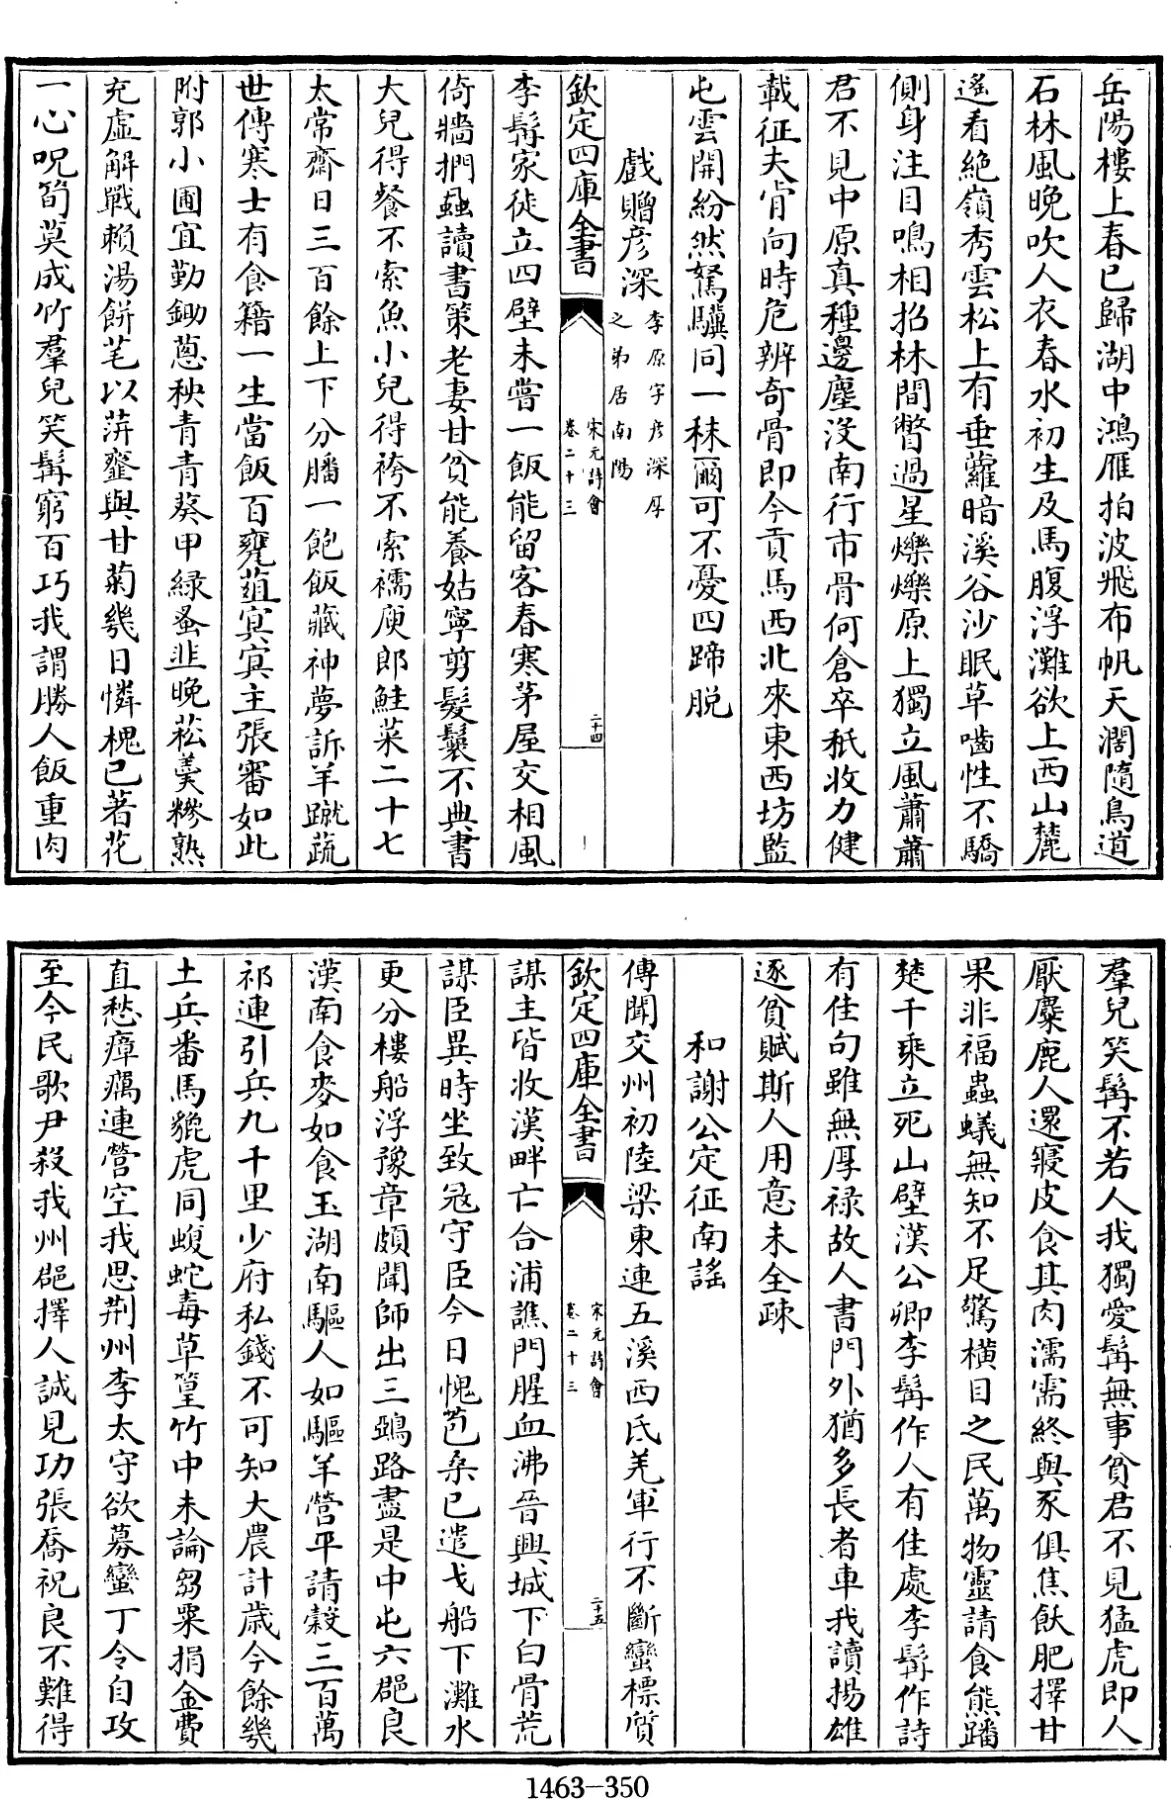 岳陽樓上春已歸湖中鴻雁拍波飛布帆天濶隨鳥道
石林風晩吹人衣春水初生及馬腹浮灘欲上西山麓
遙看絶嶺秀雲松上有垂蘿暗溪谷沙眠草嚙性不驕
側身注目鳴相招林間瞥過星爍爍原上獨立風蕭蕭
君不見中原真種邊塵没南行市骨何倉卒秪收力健
載征夫肯向時危辨奇骨即今貢馬西北來東西坊監
屯雲開紛然駑驥同一秣爾可不憂四蹄脱
戲贈彦深李原字彦深厚
之弟居南陽
欽定四庫全書
宋元詩會
卷二十三
二十四
李髯家徒立四壁未嘗一飯能留客春寒茅屋交相風
倚牆捫蝨讀書策老妻甘貧能養姑寧剪髮鬟不典書
大兒得餐不索魚小兒得袴不索襦庾郎鮭菜二十七
太常齋日三百餘上下分膰一飽飯藏神夢訴羊蹴蔬
世傳寒士有食籍一生當飯百甕葅冥冥主張審如此
附郭小圃宜勤鋤葱秧青青葵甲綠蚤韭晩菘羹糝熟
充虛解戰賴湯餅芼以蓱虀與甘菊幾日憐槐已著花
一心呪筍莫成竹羣兒笑髯窮百巧我謂勝人飯重肉
羣兒笑髯不若人我獨愛髯無事貧君不見猛虎即人
厭麋鹿人還寢皮食其肉濡需終與豕俱焦飫肥擇甘
果非福蟲蟻無知不足驚橫目之民萬物靈請食熊蹯
楚千乘立死山壁漢公卿李髯作人有佳處李髯作詩
有佳句雖無厚禄故人書門外猶多長者車我讀揚雄
逐貧賦斯人用意未全疎
和謝公定征南謠
傳聞交州初陸梁東連五溪西氐羌軍行不斷蠻標質
欽定四庫全書
宋元詩會
卷二十三
二十五
謀主皆收漢畔亡合浦譙門腥血沸晉興城下白骨荒
謀臣異時坐致寇守臣今日愧苞桑已遣戈船下灘水
更分樓船浮豫章頗聞師出三鵶路盡是中屯六郡良
漢南食麥如食玉湖南驅人如驅羊營平請穀三百萬
祁連引兵九千里少府私錢不可知大農計歲今餘幾
土兵番馬貔虎同蝮蛇毒草篁竹中未論芻粟捐金費
直愁瘴癘連營空我思荆州李太守欲募蠻丁令自攻
至今民歌尹殺我州郡擇人誠見功張喬祝良不難得
1463-350